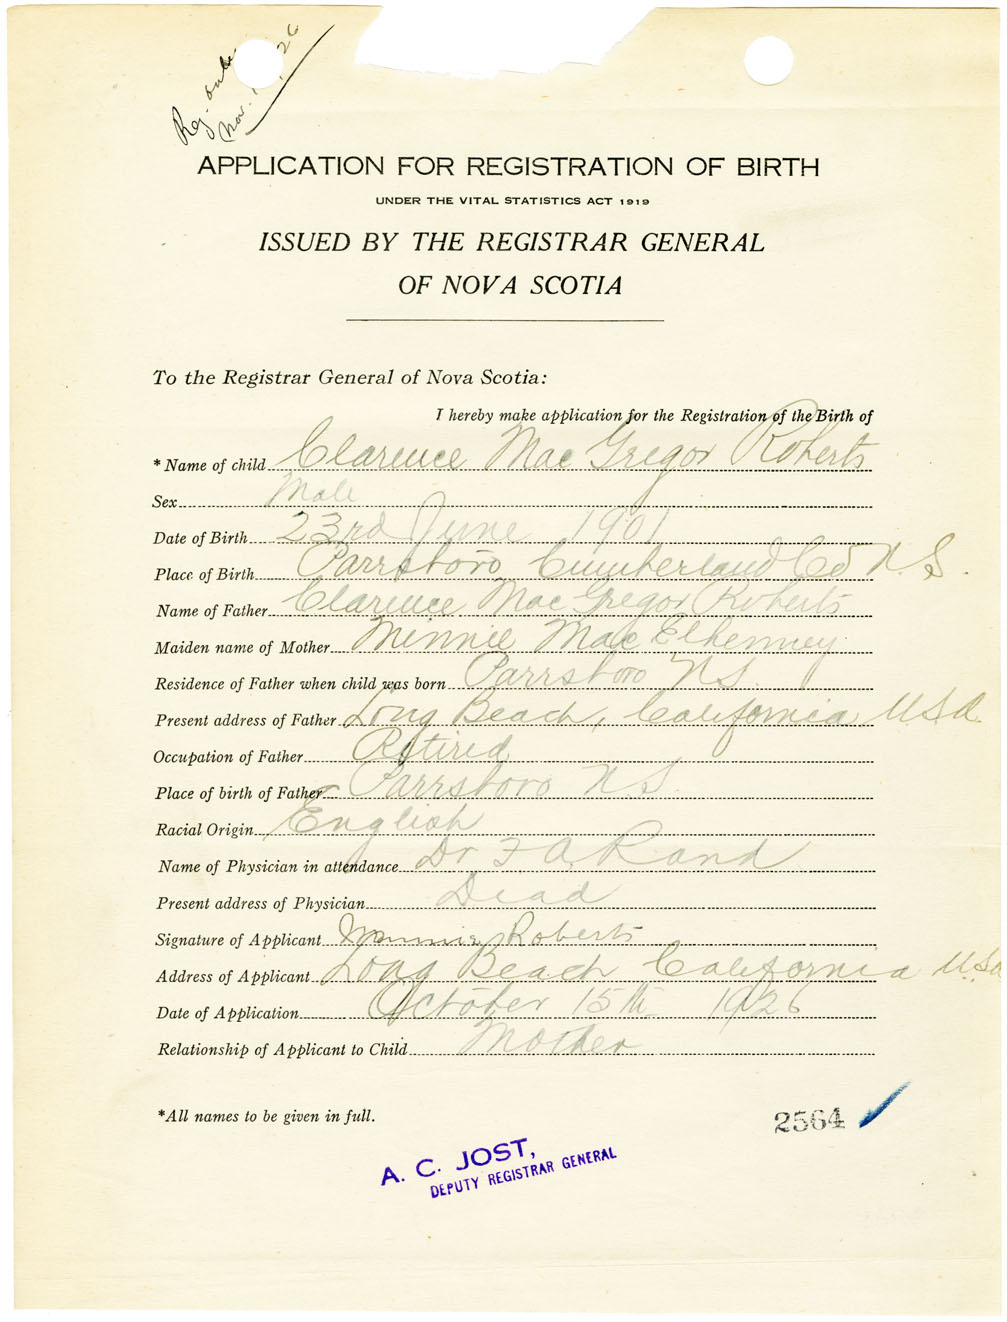 Reg. under
Nov. 1 , 26
APPLICATION FOR REGISTRATION OF BIRTH
UNDER THE VITAL STATISTICS ACT 1919
ISSUED BY THE REGISTRAR GENERAL
OF NOVA SCOTIA
To the Registrar General of Nova Scotia:
I hereby make application for the Registration of the Birth of
* Name of child Clarence Mac Gregor Roberts
Sex Male
Date of Birth 23rd June 1901
Place of Birth Parrsboro Cumberland Co N.S.
Name of Father Clarence Mac Gregor Roberts
Maiden name of Mother Minnie Mac Elhenney
Residence of Father when child was born Parrsboro N.S.
Present address of Father Long Beach, California U.S.A.
Occupation of Father Retired
Place of birth of Father Parrsboro N.S.
Racial Origin English
Name of Physician in attendance Dr F A Rand
Present address of Physician Dead
Signature of Applicant Minnie Roberts
Address of Applicant Long Beach California U.S.A
Date of Application October 15th 1926
Relationship of Applicant to Child Mother
*All names to be given in full.
2564
A. C. JOST,
DEPUTY REGISTRAR GENERAL